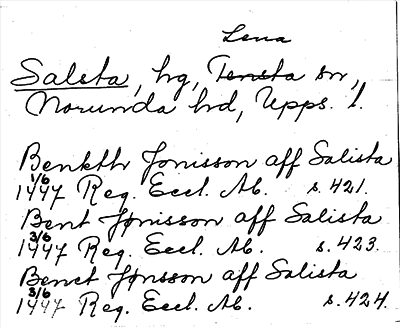 Lena
Salsta, hg, Tensta sn,
Norunda hd, Upps. l.
Benkth Jonisson aff Salista
1/6
1447 Reg. Eccl. Ab. s. 421.
Bent Jönisson aff Salista
3/6
1447 Reg. Eccl. Ab. s. 423.
Benct Jonsson aff Salista
3/6
1447 Reg. Eccl. Ab. s. 424.